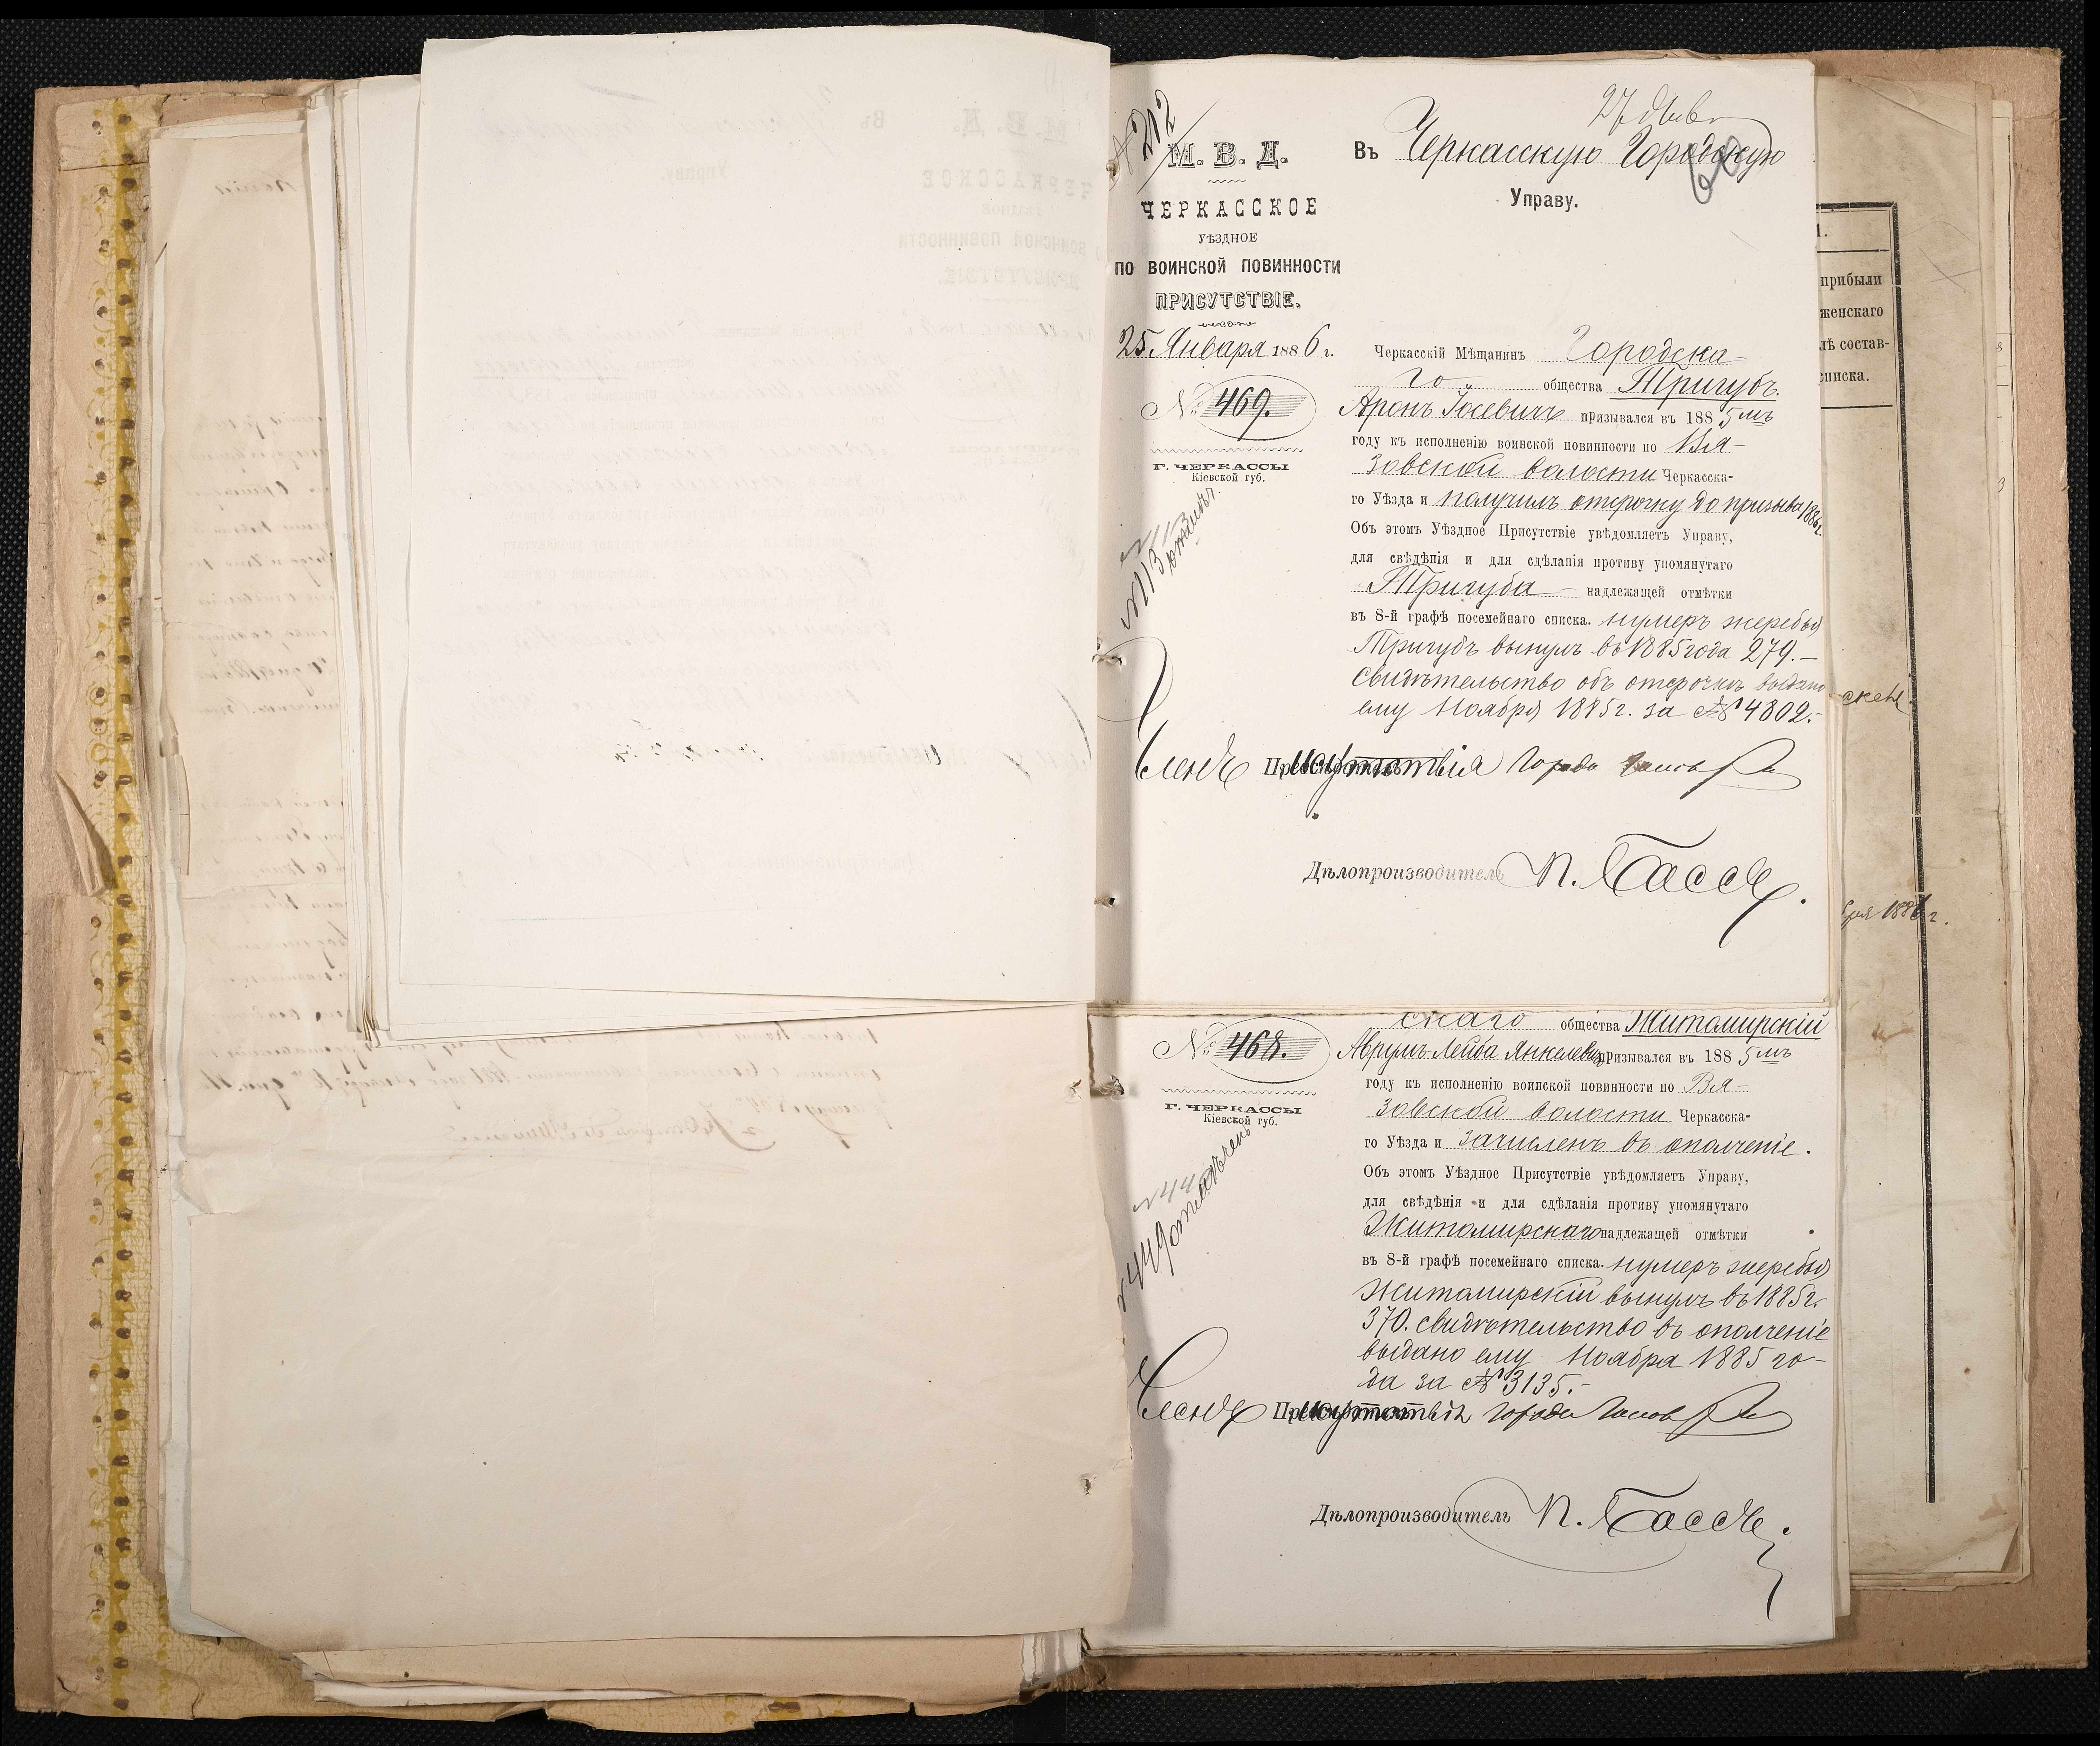 27 Янв
№ 212
М. В. Д.
ЧЕРКАССКОЕ
УѢЗДНОЕ
ПО ВОИНСКОЙ ПОВИННОСТИ
ПРИСУТСТВІЕ.
25 Января 1886 г.
№ 469.
Г. ЧЕРКАССЫ
Кіевской губ.
№ 113
Въ Черкасскую Городскую
Управу.
Черкасскій Мѣщанинъ Городска-
го общества Тригубъ
Аронъ Іосевичъ призывался въ 1885мъ
году къ исполненію воинской повинности по Вя-
зовской волости Черкасска-
го Уѣзда и получилъ отсрочку до призыва 1886 г.
Объ этомъ Уѣздное Присутствіе увѣдомляетъ Управу,
для свѣдѣнія и для сдѣланія противу упомянутаго
Тригуба — надлежащей отмѣтки
въ 8-й графѣ посемейнаго списка. нумеръ жеребья
Тригубъ вынулъ въ 1885 года 279.—
Свидѣтельство объ отсрочкѣ выдано
ему Ноября 1885 г. за № 4802.-
Членъ Присутствія
Дѣлопроизводитель П. Бассъ.
скаго общества Житомирскій
№ 468.
Аврумъ-Лейба Янкелевъ призывался въ 1885мъ
году къ исполненію воинской повинности по Вя-
зовской волости Черкасска-
го Уѣзда и зачисленъ въ ополченіе.
Г. ЧЕРКАССЫ
Кіевской губ.
№ 449 отмѣчено
Объ этомъ Уѣздное Присутствіе увѣдомляетъ Управу,
для свѣдѣнія и для сдѣланія противу упомянутаго
Житомирскаго надлежащей отмѣтки
въ 8-й графѣ посемейнаго списка. нумеръ жеребья
Житомирскій вынулъ въ 1885 г.
370. свидѣтельство въ ополченіе
выдано ему Ноября 1885 го-
да за № 3135.-
Членъ Присутствія
Дѣлопроизводитель П. Бассъ.
прибыли
женскаго
лѣ состав-
списка.
1886 г.